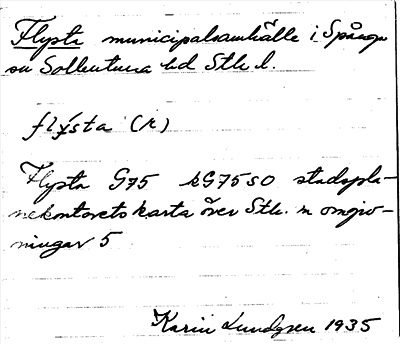 Flysta municipalsamhälle i Spånga
sn Sollentuna hd Sthl.
flysta (k)
Flysta G75 kG75SO stadspla-
nekontorets karta över Sthm m omgiv-
ningar 5
Karin Lundgren 1935